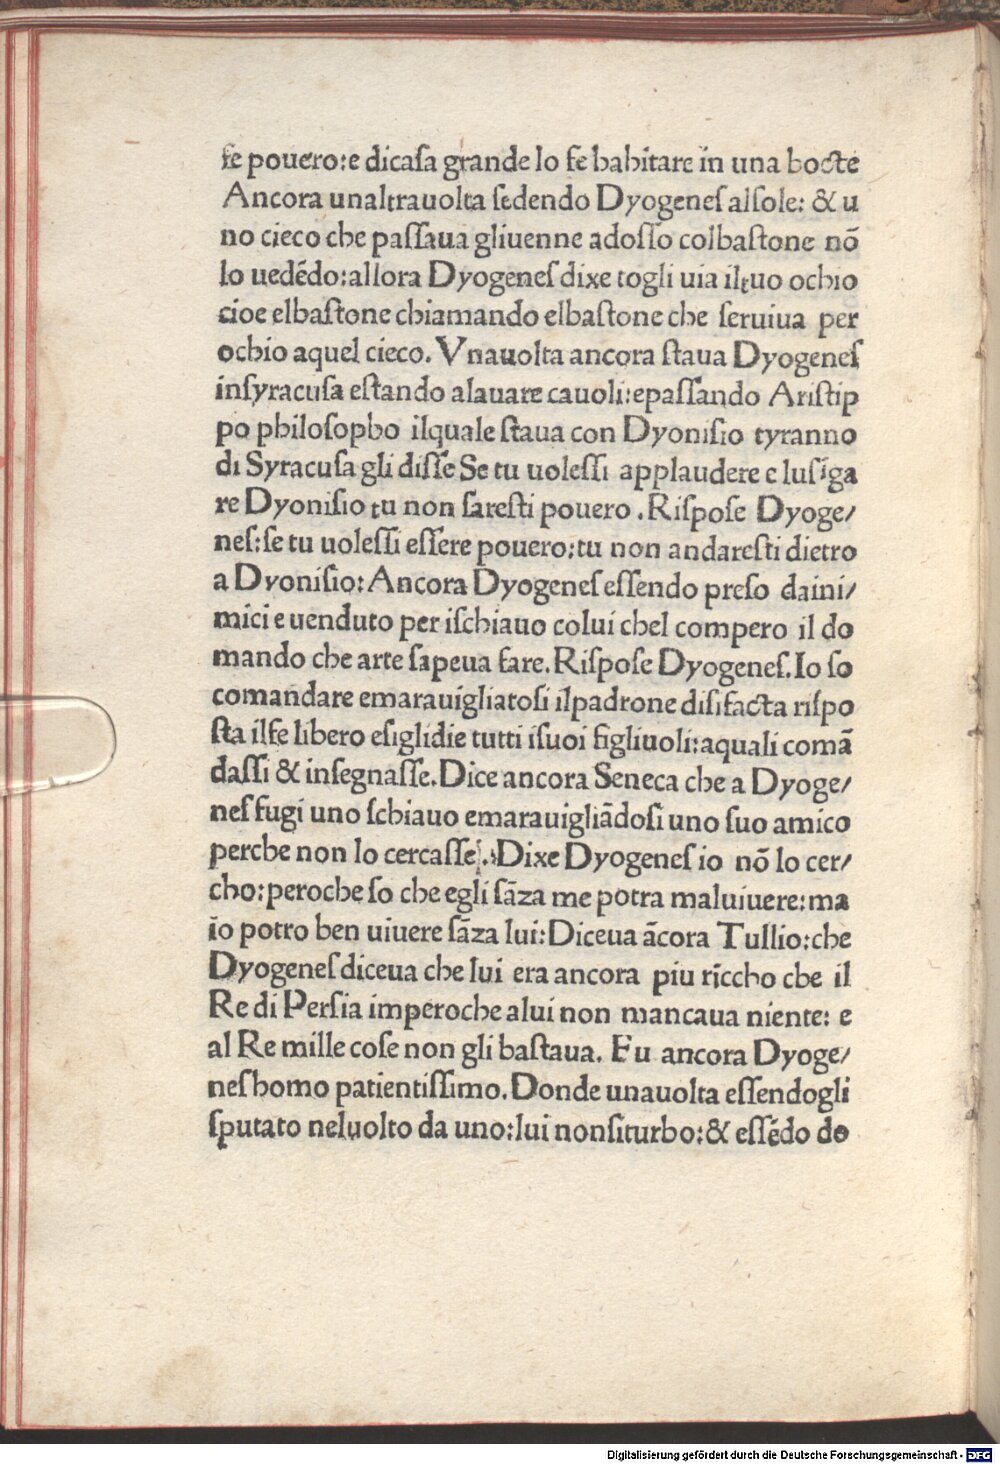 fe pouero:e dicaſa grande lo fe habitare in una bocte
Ancora unaltrauolta ſedendo Dyogeneſ alſole: & u
no cieco che paſſaua gliuenne adoſſo colbaſtone nō
lo uedēdo:allora Dyogeneſ dixe togli uia iltuo ochio
cioe elbaſtone chiamando elbaſtone che ſeruiua per
ochio aquel cieco. Vnauolta ancora ſtaua Dyogeneſ
inſyracuſa eſtando alauare cauoli:epaſſando Ariſtip
po philoſopho ilquale ſtaua con Dyoniſio tyranno
di Syracuſa gli diſſe Se tu uoleſſi applaudere e luſīga
re Dyoniſio tu non ſareſti pouero .Riſpoſe Dyoge/
neſ:ſe tu uoleſſi eſſere pouero:tu non andareſti dietro
a Dyoniſio:Ancora Dyogeneſ eſſendo preſo daini/
mici e uenduto per iſchiauo colui chel compero il do
mando che arte ſapeua fare.Riſpoſe Dyogeneſ.Io ſo
comandare emarauigliatoſi ilpadrone diſifacta riſpo
ſta ilfe libero eſiglidie tutti iſuoi figliuoli:aquali comā
daſſi & inſegnaſſe.Dice ancora Seneca che a Dyoge/
neſ fugi uno ſchiauo emarauigliādoſi uno ſuo amico
perche non lo cercaſſe.:Dixe Dyogeneſ io nō lo cer/
cho:peroche ſo che egli ſāza me potra maluiuere:ma
io potro ben uiuere ſāza lui:Diceua ācora Tullio:che
Dyogeneſ diceua che lui era ancora piu riccho che il
Re di Perſia imperoche alui non mancaua niente: e
al Re mille coſe non gli baſtaua. Fu ancora Dyoge/
neſ homo patientiſſimo.Donde unauolta eſſendogli
ſputato neluolto da uno:lui nonſiturbo:& eſſēdo do
Digitalisierung gefördert durch die Deutsche Forschungsgemeinschaft - DFG